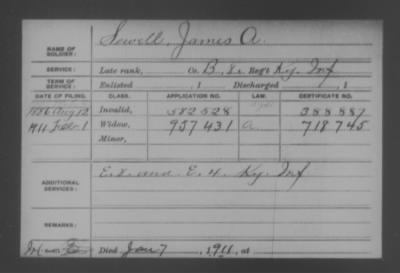 Sewell, James A.
NAME OF SOLDIER:
SERVICE: Late rank, Co. B, 8. Reg't Ky. Inf
TERM OF SERVICE: Enlisted 1 Discharged , 1
DATE OF FILING. CLASS. APPLICATION NO. LAW. CERTIFICATE NO.
1886 Aug 12 Invalid, 582 528 388 887
1911 Feb. 1 Widow, 957 431 a 718 745
Minor,
ADDITIONAL SERVICES: E. 8. and E. 4. Ky. Inf
REMARKS:
Died Jan 7, 1911, at